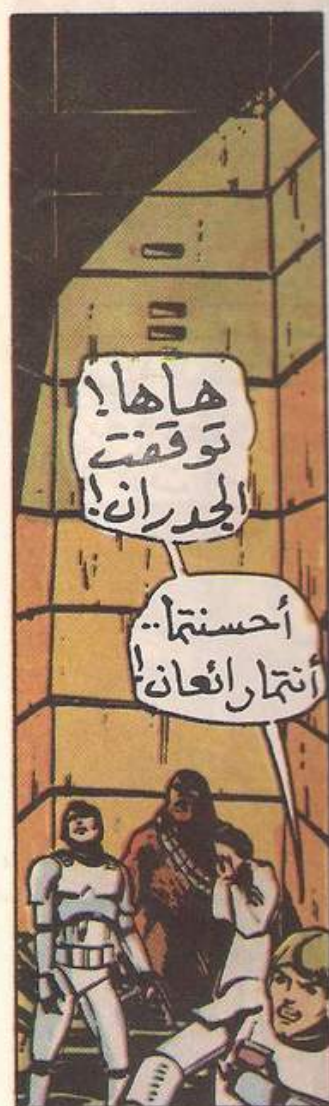 هاها!
توقفت
الجدران!
أحسنتما..
أنتما رائعان!